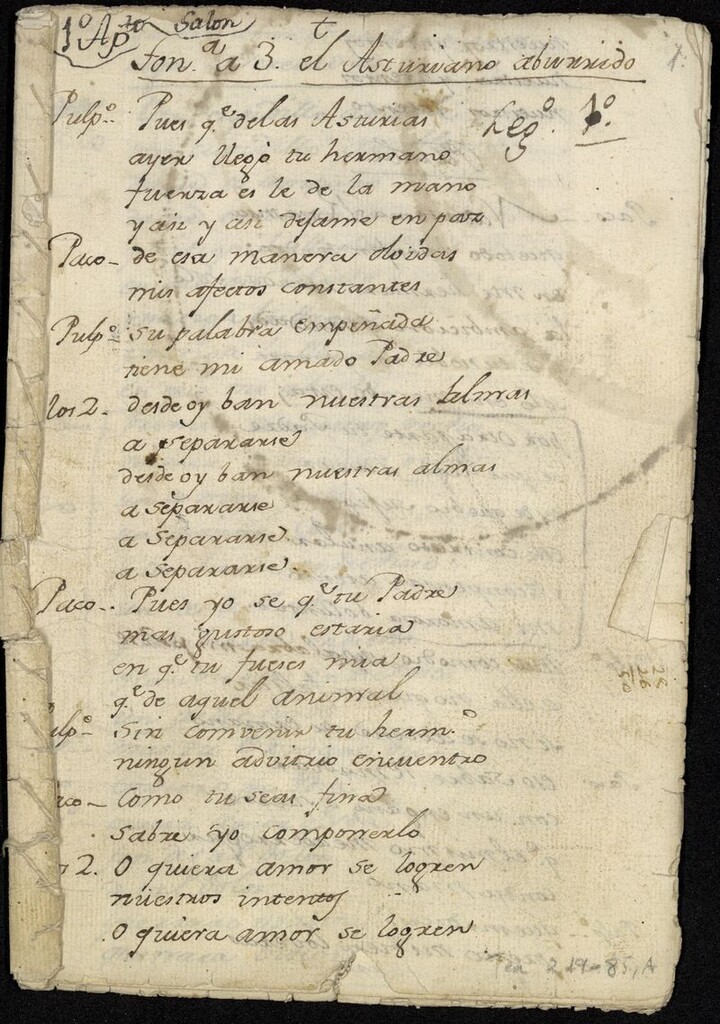 1º Apto Salon
†
Ton.ª a 3. el Asturiano aburrido
1.
Pulpº. Pues q.e de las Asturias
Leg.º 1.º
ayer llego tu hermano
fuerza es le de la mano
y asi y asi dejame en paz
Paco- de esa manera olvidas
mis afectos constantes
Pulpº su palabra empeñada
tiene mi amado Padre
los 2. desde oy ban nuestras almas
a separarse
desde oy ban nuestras almas
a separarse
a separarse
a separarse.
Paco-. Pues yo se q.e tu Padre
mas gustoso estaria
en q.e tu fueses mia
q.e de aquel animal
ulpº- Sin comvenir tu herm.º
ningun advitrio encuentro
aco- Como tu seas fina
sabre yo componerlo
s 2. O quiera amor se logren
nuestros intentos
O quiera amor se logren
219-85, A